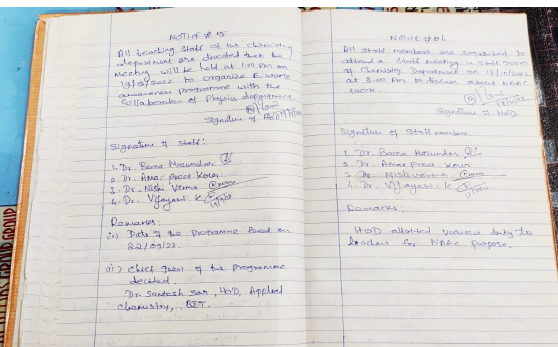 NOTICE # 05
All teaching staff of the chemistry
department are directed that the
meeting will be held at 1:00 pm on
19/09/2022 to organize E waste
awareness programme with the
collaboration of Physics department.
Signature of HOD
Signature of Staff:
1. Dr. Basna Mazumdar
2. Dr. Amar preet Kour
3. Dr. Nishi Verma
4. Dr. Vijayani K
Remarks:
i) Date of the programme fixed on
22/09/22.
ii) Chief Guest of the programme
decided.
Dr. Santosh Sar, HOD, Applied
chemistry, BIT.
Notice # 06
All staff members are requested to
attend a staff meeting in staff room
of Chemistry Department on
at 3:00 Pm to discuss about NAAC
work.
Signature of HOD
Signature of Staff members
1. Dr. Basna Mazumdar
2. Dr. Amar Preet Kour
3. Dr. Nishi Verma
4. Dr. Vijayani K
Remarks:
HOD allotted various duty to
teachers for NAAC purpose.